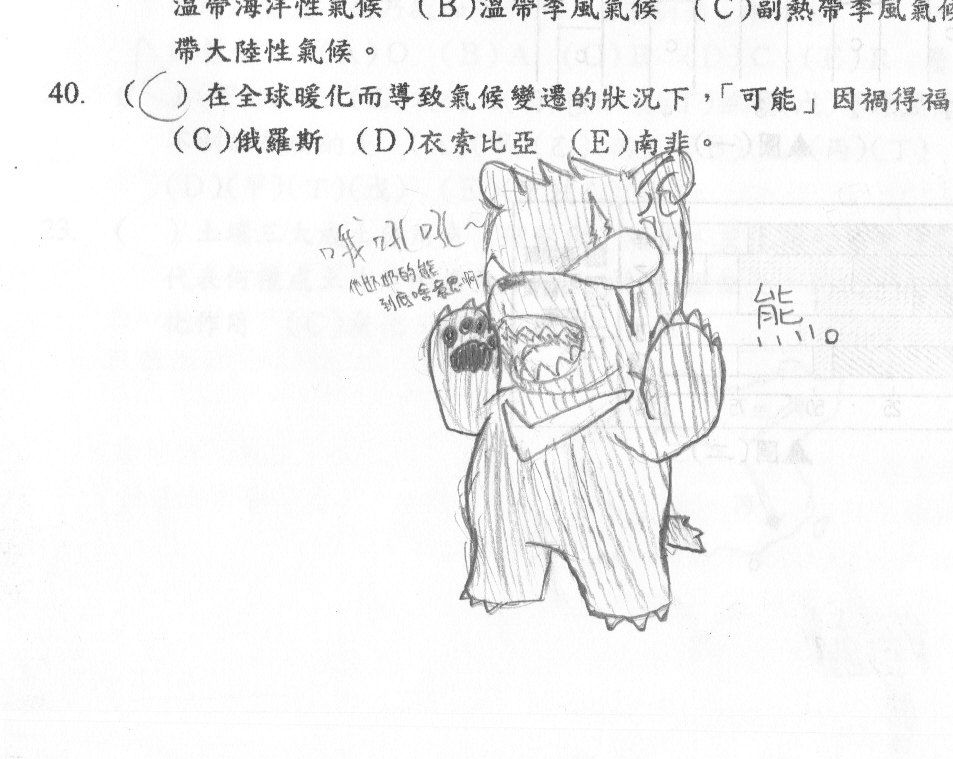 溫帶海洋性氣候 (B)溫帶季風氣候 (C)副熱帶季風氣候
帶大陸性氣候。
40. (C) 在全球暖化而導致氣候變遷的狀況下，「可能」因禍得福
(C)俄羅斯 (D)衣索比亞 (E)南非。
哦吼吼~
他奶奶的熊
到底啥意思啊
能